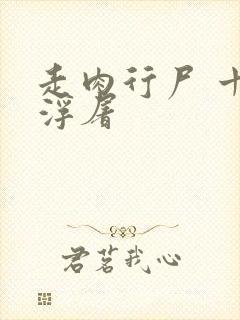 走肉行尸 十
浮屠
君茗我心